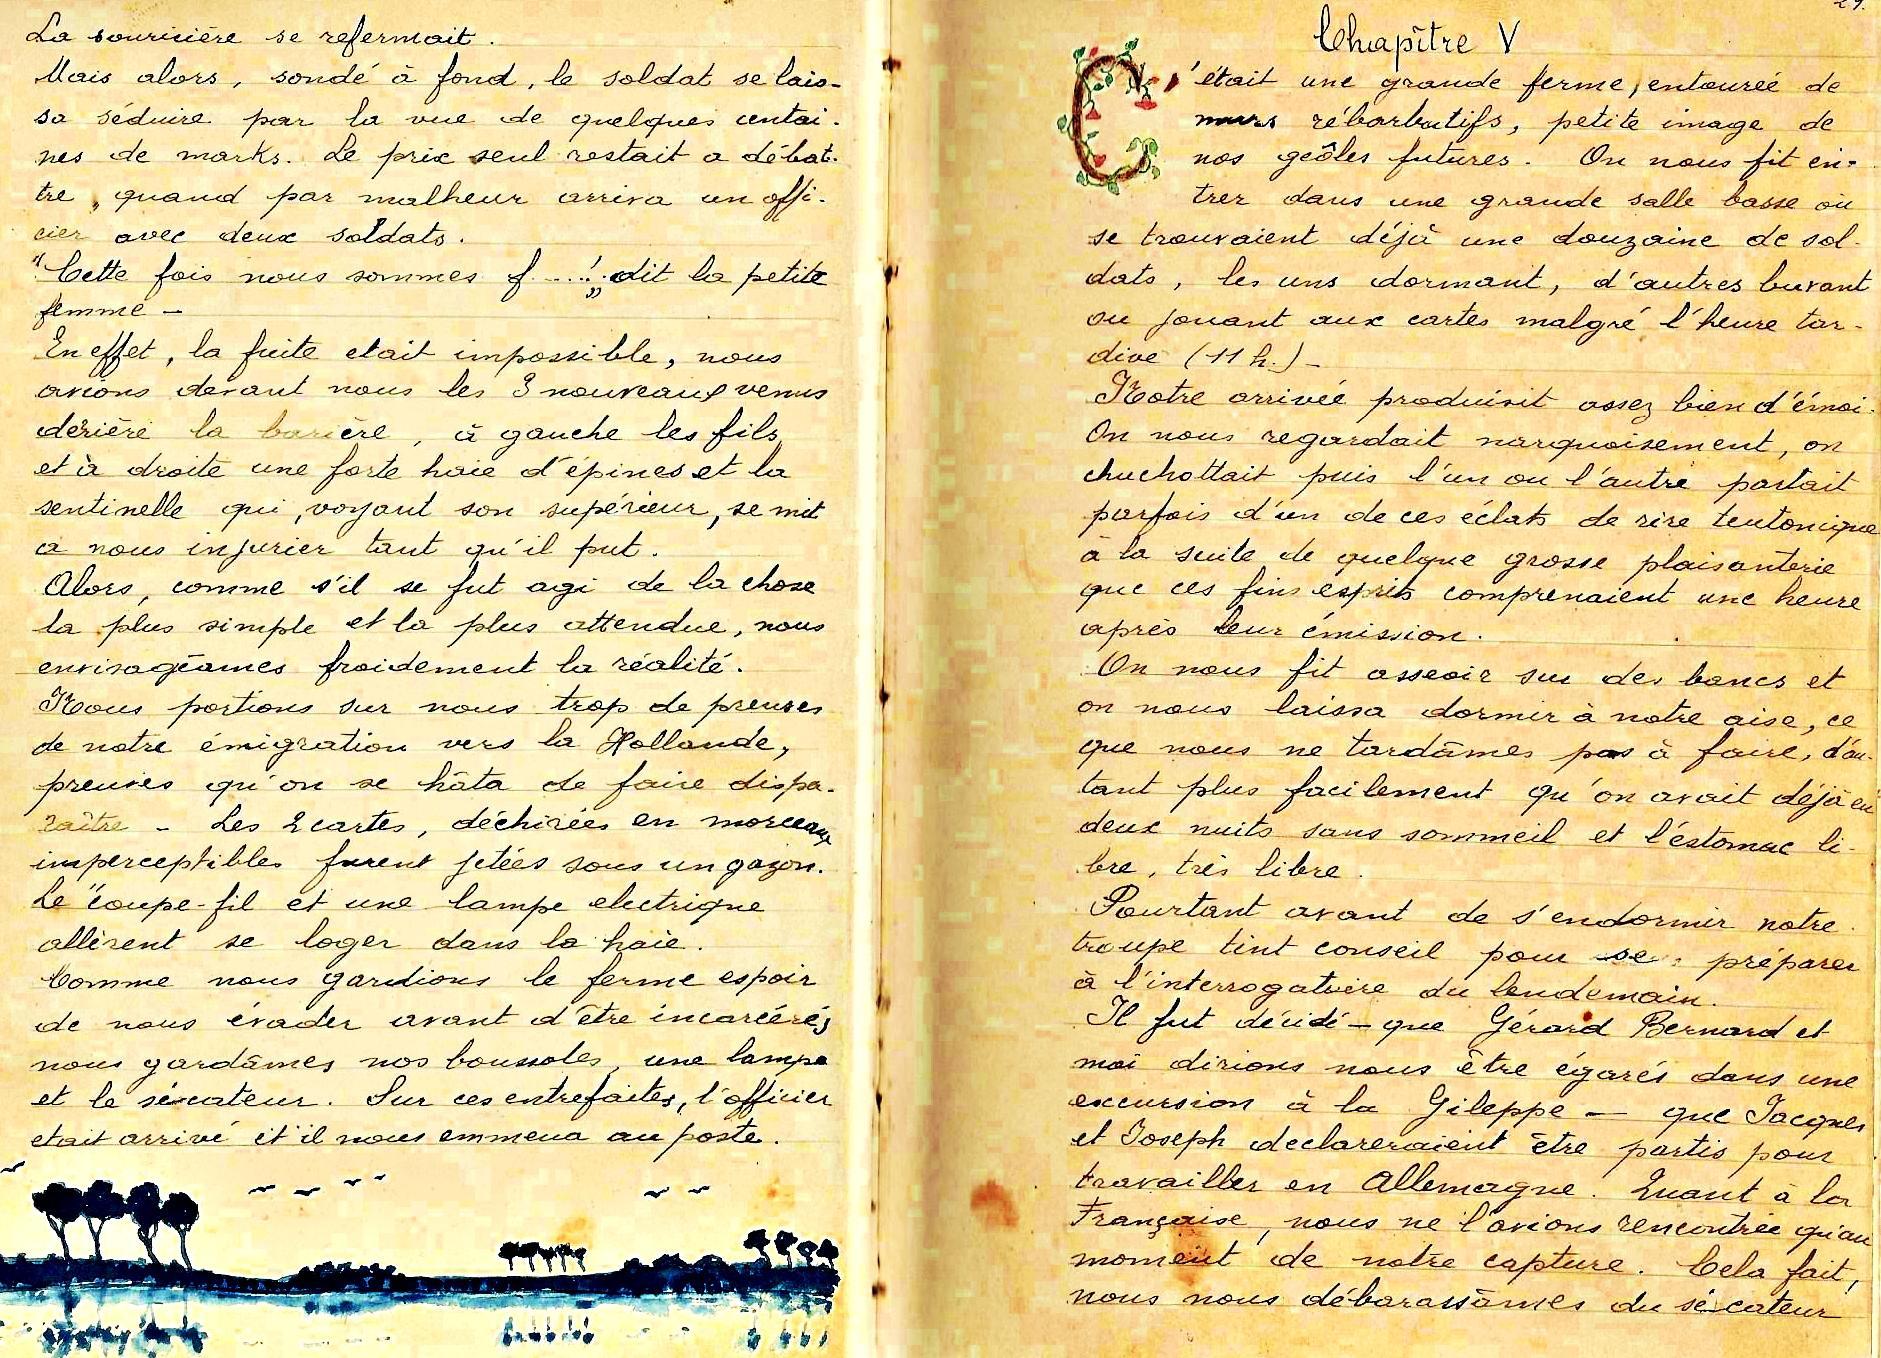 La souricière se refermait.
Mais alors, sondé à fond, le soldat se lais-
sa séduire par la vue de quelques centai-
nes de marks. Le prix seul restait a débat-
tre, quand par malheur arriva un offi-
cier avec deux soldats.
"Cette fois nous sommes f.....!" dit la petite
femme —
En effet, la fuite etait impossible, nous
avions devant nous les 3 nouveaux venus
derière la barière, à gauche les fils
et à droite une forte haie d'épines et la
sentinelle qui, voyant son supérieur, se mit
a nous injurier tant qu'il put.
Alors, comme s'il se fut agi de la chose
la plus simple et la plus attendue, nous
envisageâmes froidement la réalité.
Nous portions sur nous trop de preuves
de notre émigration vers la Hollande,
preuves qu'on se hâta de faire dispa-
raître - Les 2 cartes, déchirées en morceaux
imperceptibles furent jetées sous un gazon.
Le "coupe-fil et une lampe electrique
allèrent se loger dans la haie.
Comme nous gardions le ferme espoir
de nous évader avant d'être incarcérés
nous gardâmes nos boussoles, une lampe
et le sécateur. Sur ces entrefaites, l'officier
etait arrivé et il nous emmena au poste.
29.
Chapître V
C'était une grande ferme, entourée de
murs rébarbatifs, petite image de
nos geôles futures. On nous fit en-
trer dans une grande salle basse où
se trouvaient déjà une douzaine de sol-
dats, les uns dormant, d'autres buvant
ou jouant aux cartes malgré l'heure tar-
dive (11 h.) -
Notre arrivée produisit assez bien d'émoi.
On nous regardait narquoisement, on
chuchottait puis l'un ou l'autre partait
parfois d'un de ces éclats de rire teutonique
à la suite de quelque grosse plaisanterie
que ces fins esprits comprenaient une heure
après leur émission.
On nous fit asseoir sur des bancs et
on nous laissa dormir à notre aise, ce
que nous ne tardâmes pas à faire, d'au-
tant plus facilement qu'on avait déjà eu
deux nuits sans sommeil et l'éstomac li-
bre, très libre.
Pourtant avant de s'endormir notre
troupe tint conseil pour se préparer
à l'interrogatoire du lendemain.
Il fut décidé — que Gérard Bernard et
moi dirions nous être égarés dans une
excursion à la Gileppe — que Jacques
et Joseph declareraient être partis pour
travailler en Allemagne. Quant à la
Française, nous ne l'avions rencontrée qu'au
moment de notre capture. Cela fait,
nous nous débarassâmes du sécateur